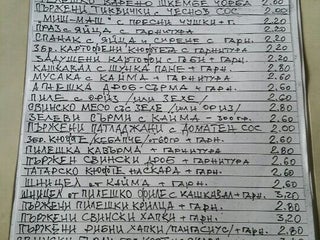 ТЕЛЕШКО ВАРЕНО ШКЕМБЕ ЧОРБА 2.60
ПЪРЖЕНИ ТИКВИЧКИ + ЧЕСНОВ СОС 2.20
"МИШ-МАШ" С ПРЕСНИ ЧУШКИ + Г. 2.20
ПРАЗ С ЯЙЦА + ГАРНИТУРА 2.20
СПАНАК С ЯЙЦА И СИРЕНЕ + ГАРН. 2.20
3бр. КАРТОФЕНИ КЮФТЕТА + ГАРНИТУРА 2.20
ЗАДУШЕНИ КАРТОФИ + ГЪБИ + ГАРН. 2.20
КАШКАВАЛ + ШУНКА ПАНЕ + ГАРН. 3.20
МУСАКА С КАЙМА + ГАРНИТУРА 2.60
АГНЕШКА ДРОБ-САРМА + ГАРН. 2.60
ПИЛЕ С ОРИЗ /ИЛИ ЗЕЛЕ/ 2.60
СВИНСКО МЕСО СЪС ЗЕЛЕ /ИЛИ ОРИЗ/ 2.80
ЗЕЛЕВИ СЪРМИ С КАЙМА - 300гр. 2.60
ПЪРЖЕНИ ПАТЛАДЖАНИ С ДОМАТЕН СОС 2.60
3бр. КЮФТЕ, КЕБАПЧЕ + ГАРН. 2.60
ПИЛЕШКА КАВЪРМА + ГАРН. 2.60
ПЪРЖЕН СВИНСКИ ДРОБ + ГАРНИТУРА 2.60
ТАТАРСКО КЮФТЕ НА СКАРА + ГАРН. 2.60
ШНИЦЕЛ ОТ КАЙМА + ГАРН. 2.60
ШНИЦЕЛ ОТ ПИЛЕШКО ФИЛЕ С КАШКАВАЛ + ГАРН. 3.20
ПЪРЖЕНИ ПИЛЕШКИ КРИЛЦА + ГАРН. 2.60
ПЪРЖЕНИ СВИНСКИ ХАПКИ + ГАРН. 3.20
ПЪРЖЕНИ РИБНИ ХАПКИ /ПАНГАСИУС/ + ГАРН. 2.60